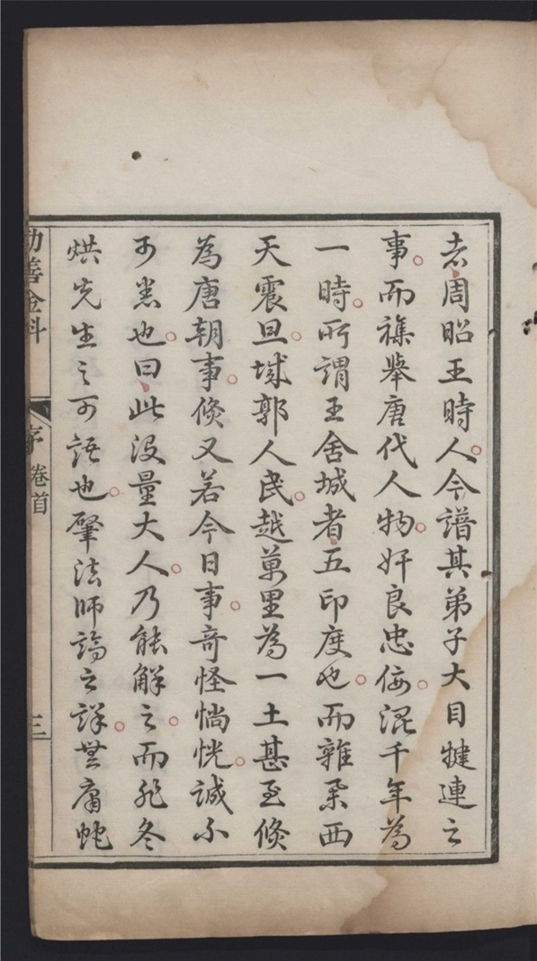 去周昭王時人今譜其弟子大目犍連之
事而襍舉唐代人物奸良忠佞混千年為
一時所謂王舍城者五印度也而雜柔西
天震旦城郭人民越萬里為一土甚至倐
為唐朝事倐又若今日事奇怪惝恍誠不
可悉也曰此沒量大人乃能解之而非冬
烘先生之可語也肇法師論之詳無庸蛇
勸善金科
序 卷首
三